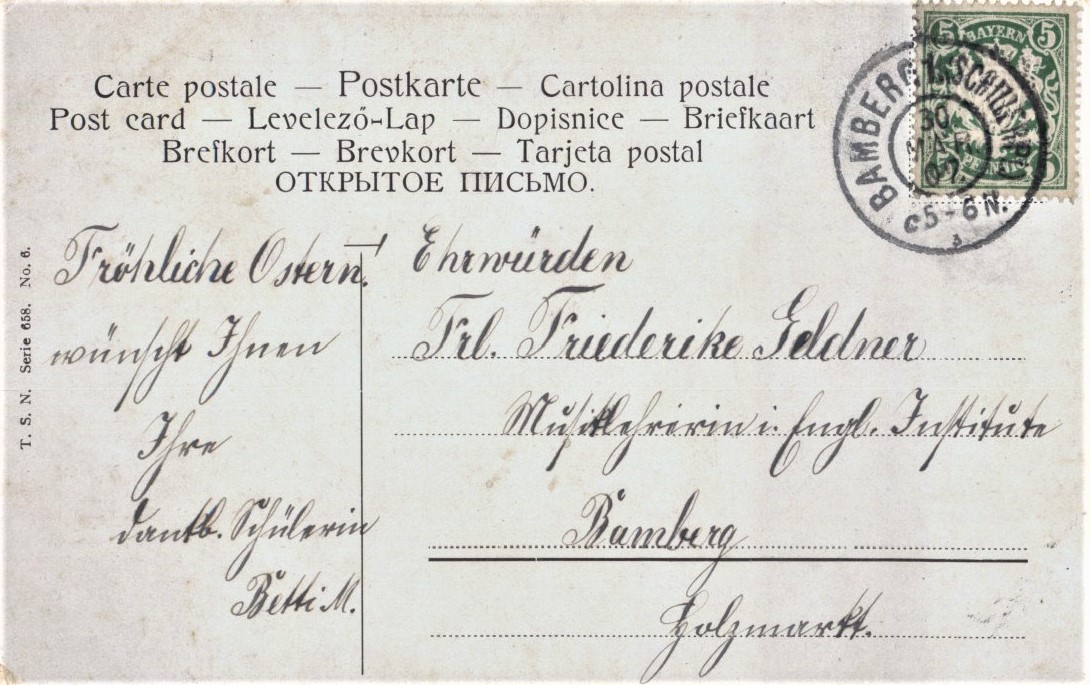 Carte postale — Postkarte — Cartolina postale
Post card — Levelező-Lap — Dopisnice — Briefkaart
Brefkort — Brevkort — Tarjeta postal
ОТКРЫТОЕ ПИСЬМО.
5 BAYERN 5
BAMBERG 1.
30
MAR
07.
5-6 N.
T. S. N. Serie 658. No. 6.
Fröhliche Ostern!
wünscht Ihnen
Ihre
dankb. Schülerin
Betti M.
Ehrwürden
Frl. Friederike Geldner
Musiklehrerin i. Engl. Institute
Bamberg
Holzmarkt.